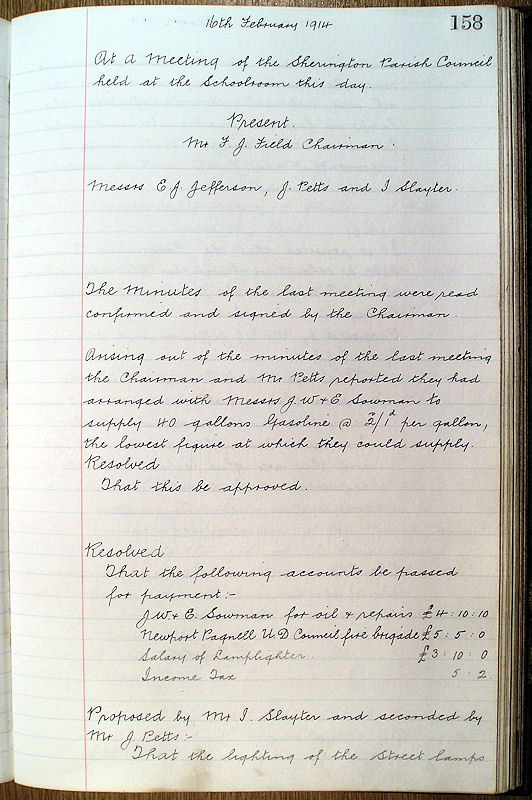 16th February 1914
158
At a Meeting of the Sherington Parish Council
held at the Schoolroom this day.
Present.
Mr F. J. Field Chairman.
Messrs E J. Jefferson, J. Petts and I Slayter.
The Minutes of the last meeting were read
confirmed and signed by the Chairman.
Arising out of the minutes of the last meeting
the Chairman and Mr Petts reported they had
arranged with Messrs J. W & E Sowman to
supply 40 gallons Gasoline @ 2/1d per gallon,
the lowest figure at which they could supply.
Resolved
That this be approved.
Resolved
That the following accounts be passed
for payment:-
J. W & E. Sowman for oil & repairs £4:10:10
Newport Pagnell U D Council fire brigade £5:5:0
Salary of Lamplighter. £3:10:0
Income Tax 5:2
Proposed by Mr I. Slayter and seconded by
Mr J. Petts:-
That the lighting of the Street lamps